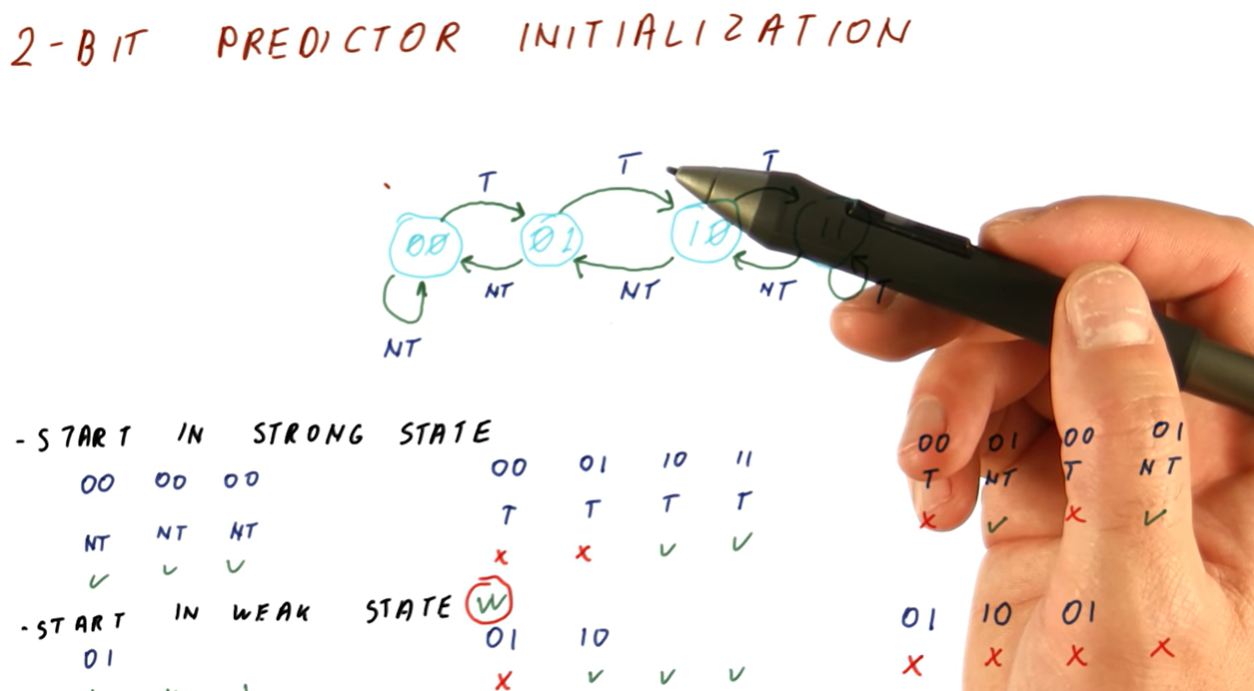 2-BIT PREDICTOR INITIALIZATION
T T T
00 01 10 11
NT NT NT T
NT
- START IN STRONG STATE
00 00 00 00 01 10 11 00 01 00 01
NT NT NT T T T T T NT T NT
✓ ✓ ✓ x x ✓ ✓ x ✓ x ✓
- START IN WEAK STATE W
01 01 10 01 10 01
x ✓ ✓ ✓ x x x x